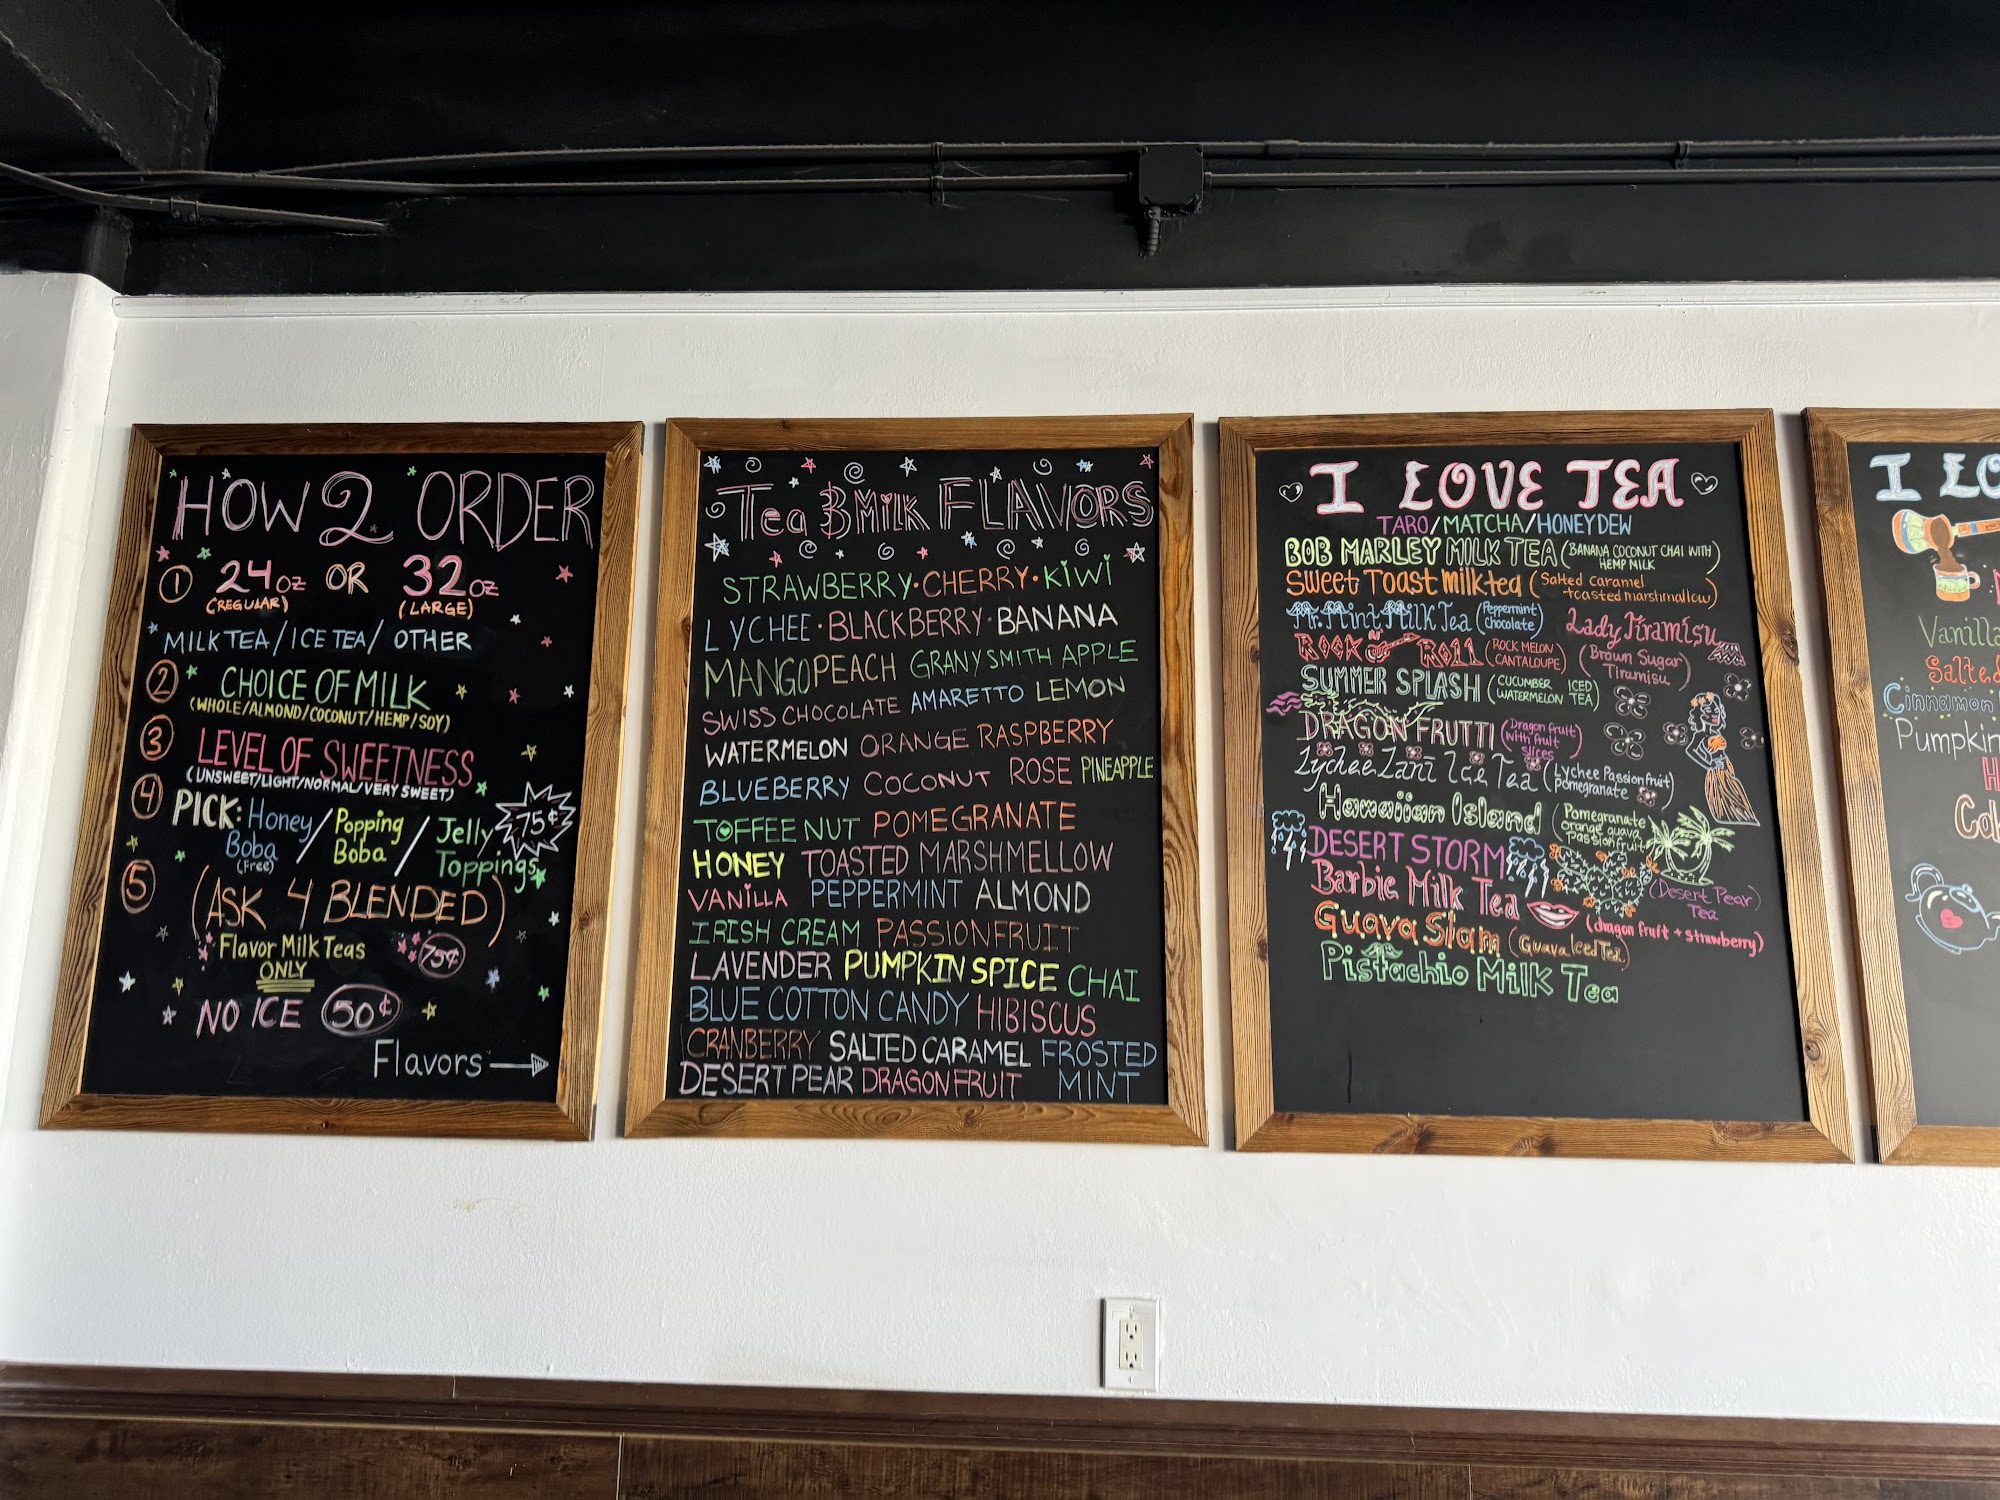 HOW 2 ORDER
1 24oz OR 32oz
(REGULAR) (LARGE)
MILK TEA/ICE TEA/ OTHER
2 CHOICE OF MILK
(WHOLE/ALMOND/COCONUT/HEMP/SOY)
3 LEVEL OF SWEETNESS
(UNSWEET/LIGHT/NORMAL/VERY SWEET)
4 PICK: Honey Boba (Free) / Popping Boba / Jelly Toppings 75¢
5 (ASK 4 BLENDED)
Flavor Milk Teas 75¢
ONLY
NO ICE 50¢
Flavors
Tea & Milk FLAVORS
STRAWBERRY·CHERRY·KIWI
LYCHEE·BLACKBERRY·BANANA
MANGO PEACH GRANY SMITH APPLE
SWISS CHOCOLATE AMARETTO LEMON
WATERMELON ORANGE RASPBERRY
BLUEBERRY COCONUT ROSE PINEAPPLE
TOFFEE NUT POMEGRANATE
HONEY TOASTED MARSHMELLOW
VANILLA PEPPERMINT ALMOND
IRISH CREAM PASSIONFRUIT
LAVENDER PUMPKIN SPICE CHAI
BLUE COTTON CANDY HIBISCUS
CRANBERRY SALTED CARAMEL FROSTED
DESERT PEAR DRAGON FRUIT MINT
I LOVE TEA
TARO/MATCHA/HONEYDEW
BOB MARLEY MILK TEA (BANANA COCONUT CHAI WITH HEMP MILK)
Sweet Toast milk tea (Salted Caramel toasted marshmallow)
Mr. Mint Milk Tea (Peppermint Chocolate)
Lady Tiramisu (Brown Sugar Tiramisu)
ROCK N ROLL (ROCK MELON CANTALOUPE)
SUMMER SPLASH (CUCUMBER WATERMELON ICED TEA)
DRAGON FRUTTI (Dragon fruit with fruit slices)
Lychee Lani Ice Tea (Lychee Passion fruit pomegranate)
Hawaiian Island (Pomegranate orange guava Passion fruit)
DESERT STORM (Desert Pear) Tea
Barbie Milk Tea (dragon fruit + strawberry)
Guava Slam (Guava Iced Tea)
Pistachio Milk Tea
I LO
Vanilla
Salted
Cinnamon
Pumpkin